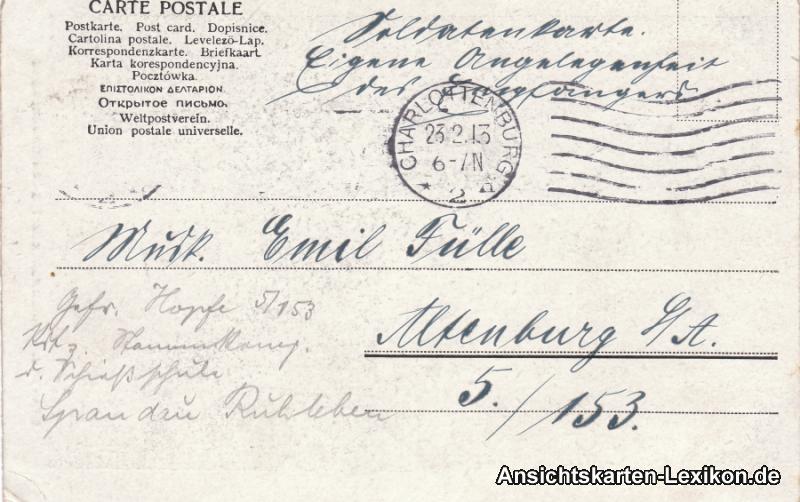 CARTE POSTALE
Postkarte. Post card. Dopisnice.
Cartolina postale. Levelező-Lap.
Korrespondenzkarte. Briefkaart.
Karta korespondencyjna.
Pocztówka.
ΕΠΙΣΤΟΛΙΚΟΝ ΔΕΛΤΑΡΙΟΝ.
Открытое письмо.
Weltpostverein.
Union postale universelle.
Soldatenkarte.
Eigene Angelegenheit
des Empfängers.
CHARLOTTENBURG
23.2.13
6-7N
* 2
Musk. Emil Fülle
Altenburg S/A.
5./153.
Gefr. Hopfe 5/153
Kdt. z. Stammkomp.
d. Schießschule
Spandau Ruhleben
Ansichtskarten-Lexikon.de